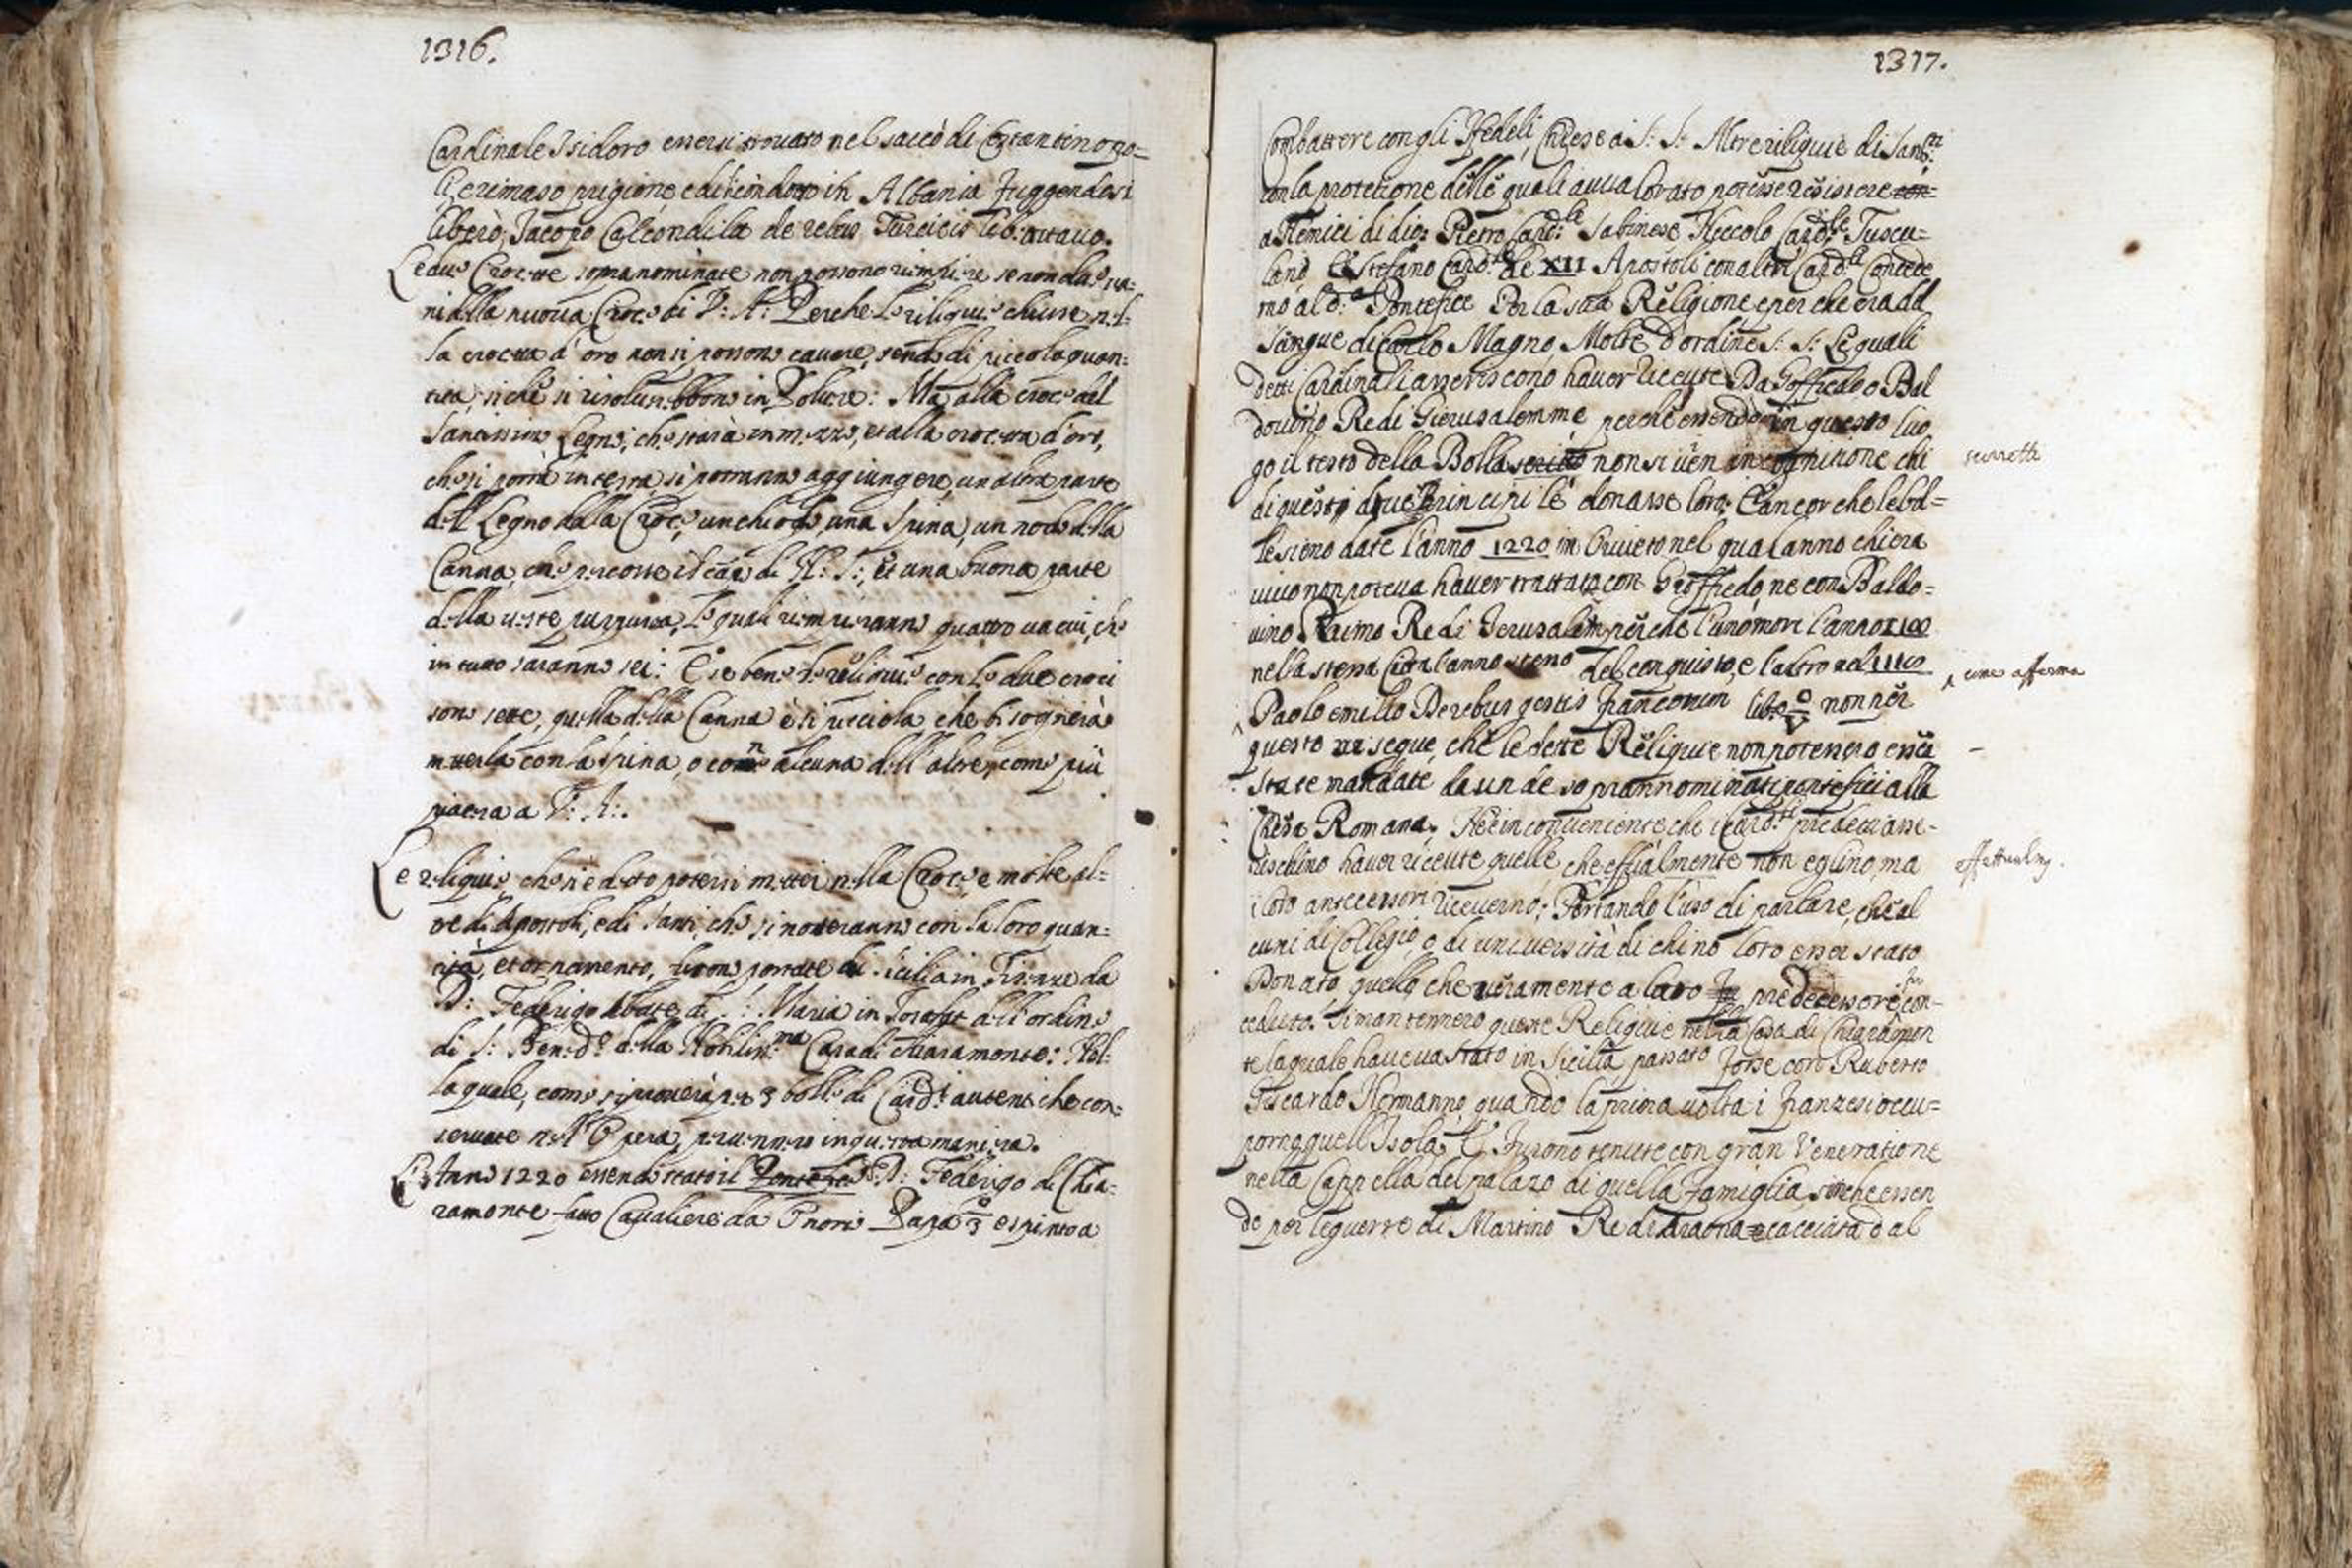 1316.
Cardinale Isidoro essersi trovato nel sacco di Costantinopo=
li, e rimaso prigione e di in Albania fuggendosi
liberò, Jacopo Calcondila de rebus Turcicis lib: ottauo.
Le due Crocette sopranominate non possono riempire se non due ua=
ni della nuoua Croce di V: A: Perche le reliquie chiuse nel=
la crocetta d'oro non si possono cauare, sendo di piccola quan=
tità, si che si risoluerebbono in Poluere: Ma alla croce del
Santissimo Legno, che starà in mezzo, et alla crocetta d'oro,
che si porrà in testa, si potranno aggiungere, un altra parte
dell Legno della Croce, un chiodo, una spina, un nodo della
Canna, che percosse il capo di N: S:, et una buona parte
della ueste purpurea, le quali riempieranno quattro uacui, che
in tutto saranno sei: E se bene le reliquie con le due croci
sono sette, quella della Canna è si picciola che bisognerà
metterla con la spina, o con alcuna dell'altre, come più
piacera a V: A:.
Le reliquie, che s'è detto potersi mettere nella Croce, e molte al=
tre di Apostoli, e di Santi, che si noteranno con la loro quan=
tità, et ornamento, furono portate di Sicilia in Firenze da
D: Federigo Abate di S: Maria in dell'ordine
di S: Ben:do della Nobiliss:ma Casa di Chiaramonte: Nel=
la quale, come si prouerà per 3 bolle di Card:i autentiche con=
seruate nell'Opera, peruennero in questa maniera.
L'Anno 1220 essendo stato il Pontefice D: Federigo di Chia=
ramonte fatto Caualiere da Onorio Papa 3o e spinto a
1317.
Combattere con gli Nfedeli, Chiese a S: S: Altre riliquie di Santi
con la protetione delle quali auea lorato potesse resistere con=
a Nemici di dio: Pietro Card:le Sabinese Niccolo Card:le Tuscu=
lano, et Stefano Card:le de XII Apostoli con altri Card:li Concede
rno al d:o Pontefice Per la sua Religione e per che era del
Sangue di Carlo Magno, Molte d'ordine S: S: Le quali
detti Cardinali asseriscono hauer riceute Da Goffredo o Bal
douino Re di Gierusalemme, perche essendo in questo luo
go il testo della Bolla scritto non si uien in cognitione chi
di questi due Principi le donasse loro: E ancor che le bol=
le sieno date l'anno 1220 in Oruieto nel qual anno chi era
uiuo non poteua hauer trattato con Gioffredo, ne con Baldo=
uino Primo Re di Jerusalem, perche l'uno morì l'anno 1100
nella stessa Citta l'anno steso del conquisto, e l'altro nel 1118
Paolo emilio De rebus gestis francorum lib:o V non per
questo segue, che le dette Reliquie non potessero esser
state mandate da un de sopranominati pontefici alla
Chiesa Romana, Ne è inconueniente che i Card:li predetti asse-
rischino hauer riceute quelle che non eglino, ma
i loro antecessori riceuerno; Portando l'uso di parlare, che al
cuni di Collegio, o di uniuersità dichino loro esser stato
Donato quello che ueramente a loro fu predecessore fu con-
ceduto. Si mantennero queste Reliquie nella Casa di Chiaramon
te la quale haueua stato in Sicilia passato forse con Ruberto
Guiscardo Normanno, quando la prima uolta i franzesi occu=
porno quell'Isola, E furono tenute con gran Veneratione
nella Cappella del palazo di quella famiglia, sinche essen
do per le guerre di Martino Re di Araona cacciata dal
scorretto
come afferma
effettualm.